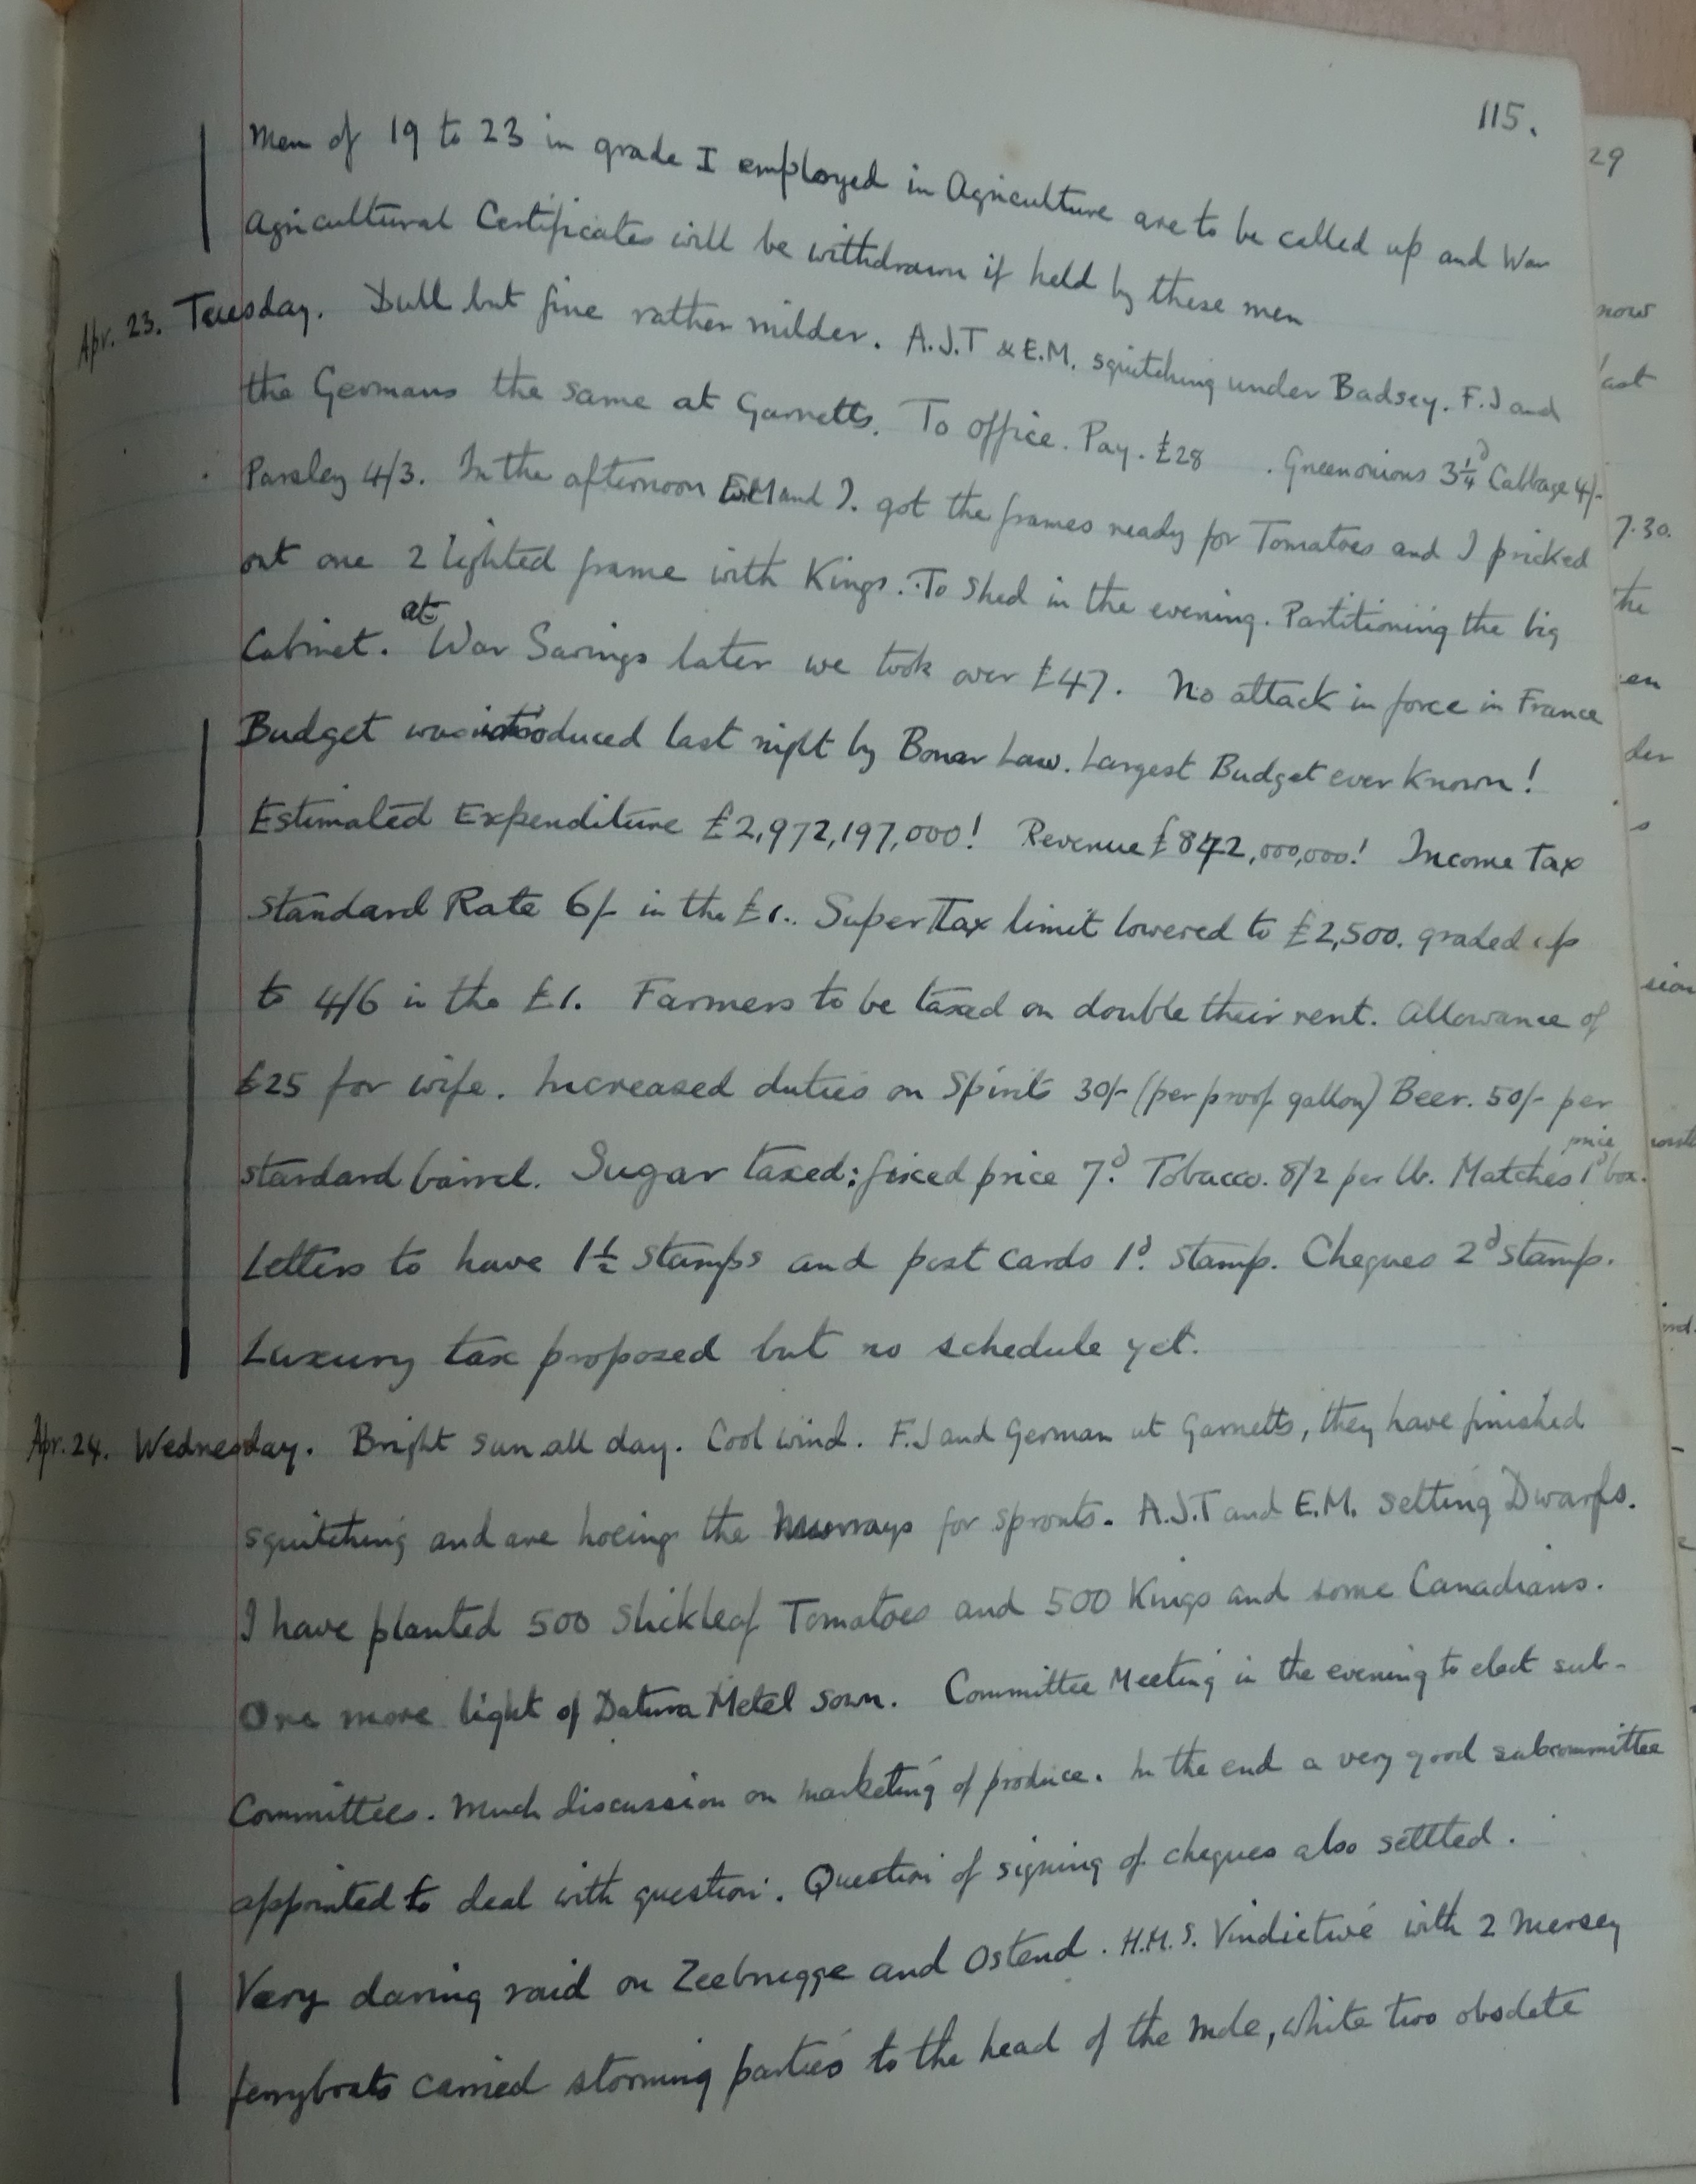 115.
Men of 19 to 23 in grade I employed in Agriculture are to be called up and War
Agricultural Certificates will be withdrawn if held by these men
Apr. 23. Tuesday. Dull but fine rather milder. A.J.T & E.M. squitching under Badsey. F.J and
the Germans the same at Garnetts. To office. Pay. £28 . Greenonions 3¼d Cabbage 4/-
Parsley 4/3. In the afternoon EM and I. got the frames ready for Tomatoes and I pricked
out one 2 lighted frame with Kings. To Shed in the evening. Partitioning the big
Cabinet. at War Savings later we took over £47. No attack in force in France
Budget was introduced last night by Bonar Law. Largest Budget ever known!
Estimated Expenditure £2,972,197,000! Revenue £842,000,000! Income Tax
standard Rate 6/- in the £1. Super Tax limit lowered to £2,500. graded up
to 4/6 in the £1. Farmers to be taxed on double their rent. Allowance of
£25 for wife. Increased duties on Spirits 30/- (per proof gallon) Beer. 50/- per
standard barrel. Sugar taxed: fixed price 7d. Tobacco. 8/2 per lb. Matches price 1d box.
Letters to have 1½ stamps and post cards 1d. stamp. Cheques 2d stamp.
Luxury tax proposed but no schedule yet.
Apr. 24. Wednesday. Bright sun all day. Cool wind. F.J and German at Garnetts, they have finished
squitching and are hoeing the Murrays for sprouts. A.J.T and E.M. setting Dwarfs.
I have planted 500 Stickleaf Tomatoes and 500 Kings and some Canadians.
One more light of Datura Metel sown. Committee Meeting in the evening to elect sub-
Committees. Much discussion on marketing of produce. In the end a very good subcommittee
appointed to deal with question. Question of signing of cheques also settled.
Very daring raid on Zeebrugge and Ostend. H.M.S. Vindictive with 2 Mersey
ferryboats carried storming parties to the head of the mole, while two obsolete
29
now
last
7.30.
the
en
der
s
sion